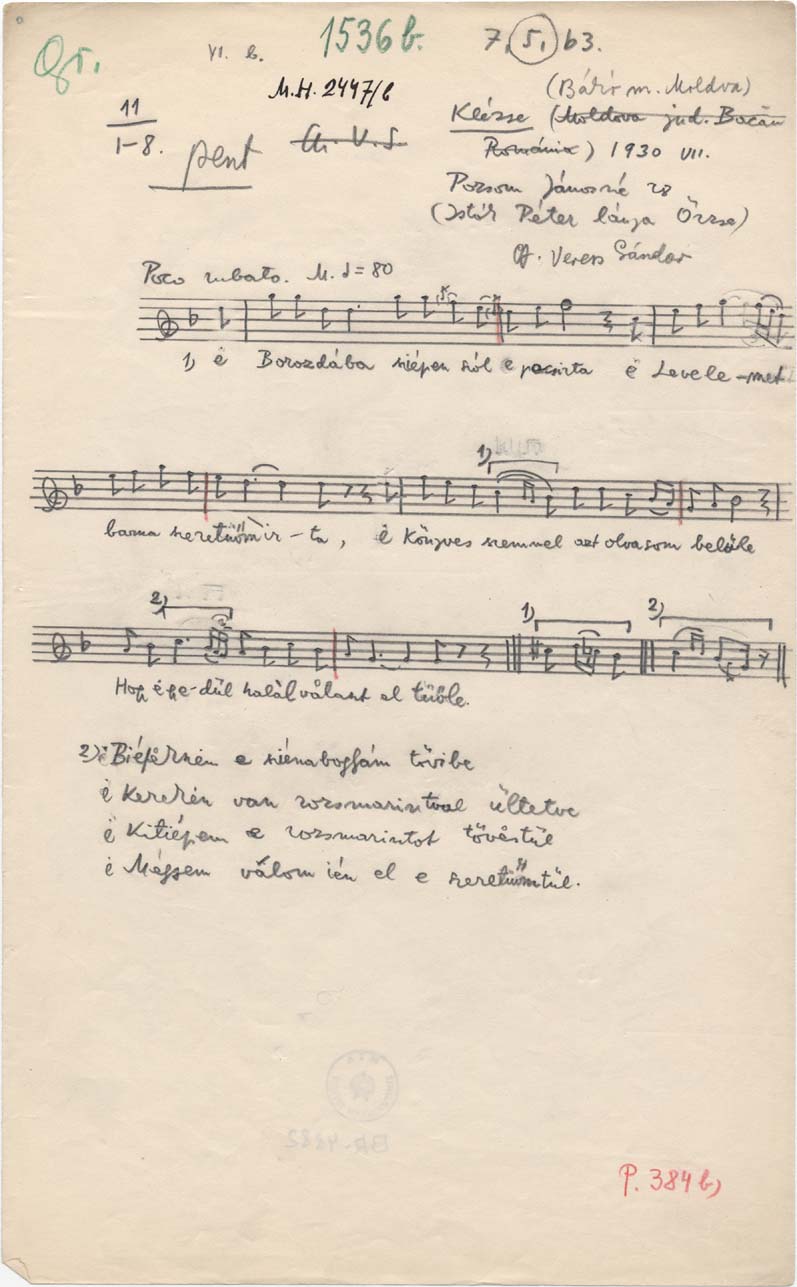 VI. b. 1536 b. 7. 5. b3.
M.H. 2447/b
(Bákó m. Moldva)
11
1-8. pent
Klézse (Moldova jud. Bacău
România) 1930 VII.
Pozsom Jánosné 28
(Istók Péter lánya Örzse)
Gy. Veress Sándor
Poco rubato. M. ♩=80
1, ė Borozdába sziépen szól e pacsirta ė Levele-met
1)
barna szeretüőm ir-ta, ė Könyves szemmel azt olvasom belüle
2, 1, 2,
Hogy ége-dül halál választ el tüőle.
2) ė Biéfërném e sziénaboglyám tövibe
ė Kerekén van rozsmarintval ültetve
ė Kitiépem e rozsmarintot tövöstül
ė Mégsem válom ién el e szeretüőmtül.
BR-4882
P. 384 b,